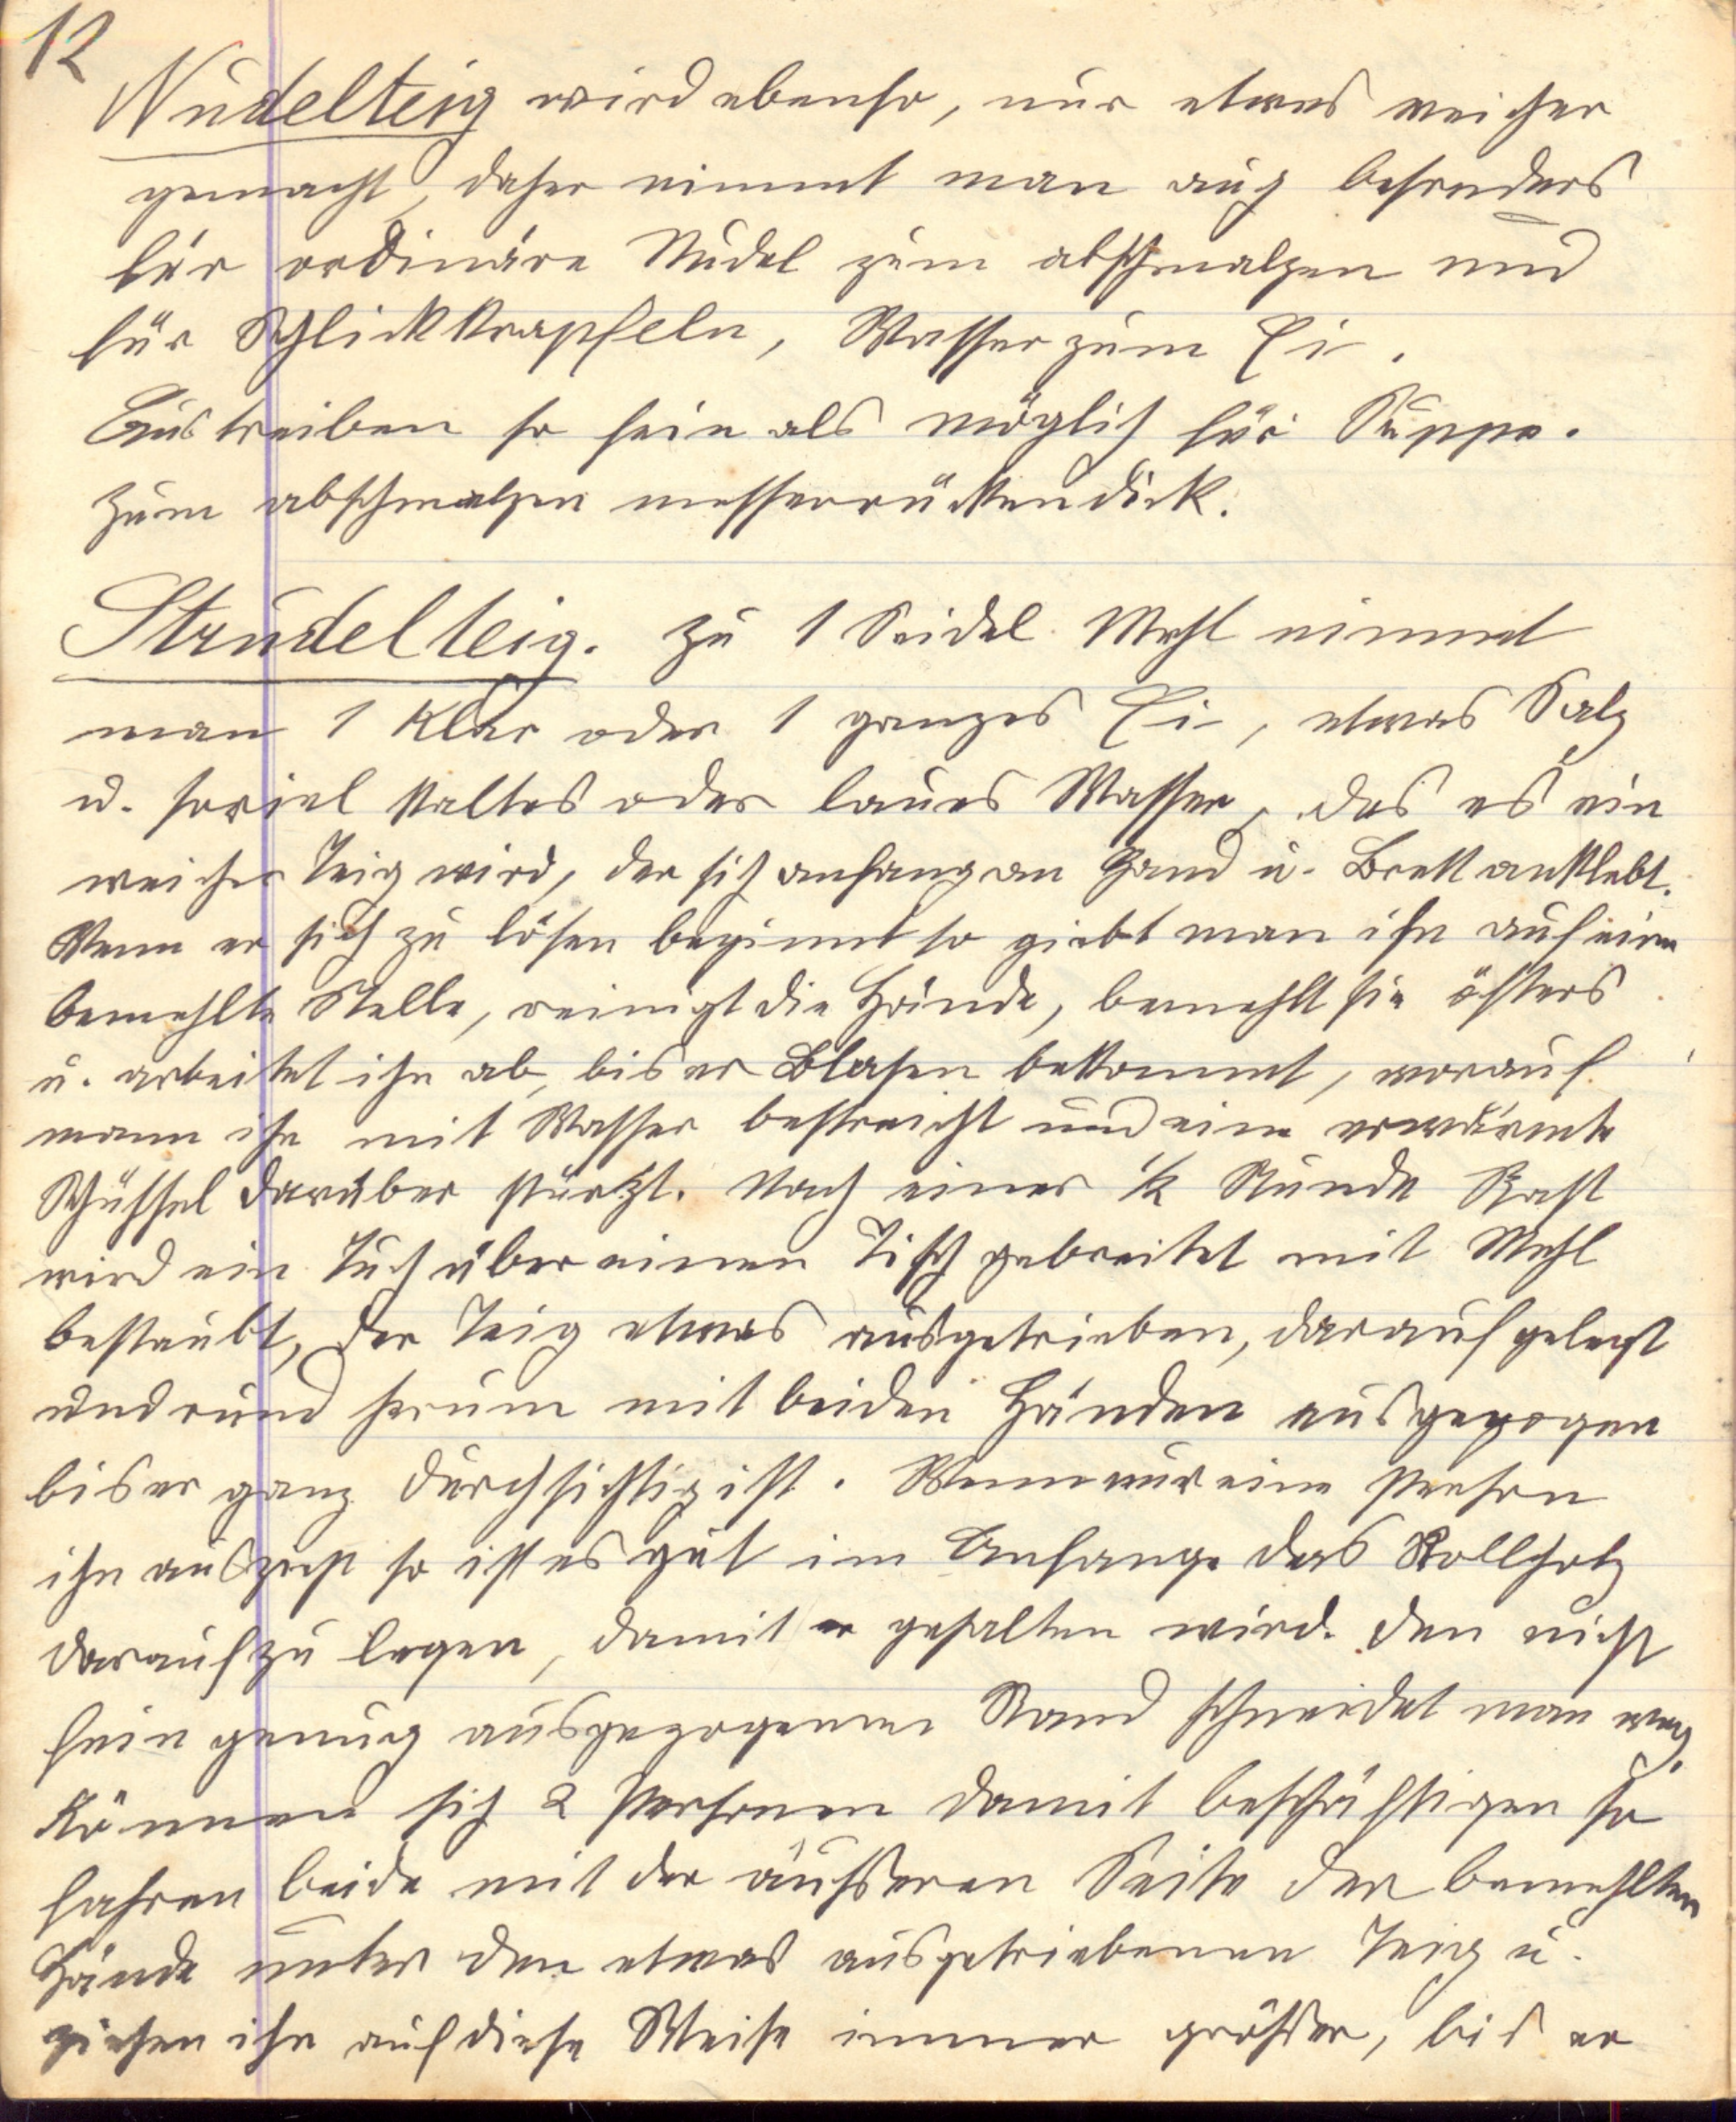 12
Nudelteig wird ebenso, nur etwas weicher
gemacht, daher nimmt man auch besonders
für ordinäre Nudel zum abschmalzen und
für Schlickkrapfeln, Wasser zum Ei.
Austreiben so fein als möglich für Suppe.
Zum abschmalzen messerrückendick.
Strudelteig. Zu 1 Seidel Mehl nimmt
man 1 Klar oder 1 ganzes Ei, etwas Salz
u. soviel kaltes oder laues Wasser, das es ein
weicher Teig wird, der sich anfang an Hand u. Brett anklebt.
Wenn er sich zu lösen beginnt so giebt man ihn auf eine
bemehlte Stelle, reinigt die Hände, bemehlt sie öfters
u. arbeitet ihn ab, bis er Blasen bekommt, worauf
mann ihn mit Wasser bestreicht und eine erwärmte
Schüssel darüber stürtzt. Nach einer ½ Stunde Rast
wird ein Tuch über einen Tisch gebreitet mit Mehl
bestaubt, der Teig etwas ausgetrieben, darauf gelegt
und rund herum mit beiden Händen ausgezogen
bis er ganz durchsichtig ist. Wenn nur eine Person
ihn auszieht so ist es gut im Anfange das Rollholz
darauf zu legen, damit er gehalten wird. Den nicht
fein genug ausgezogenen Rand schneidet man weg.
Können sich 2 Personen damit beschäftigen so
fahren beide mit der äußeren Seite der bemehlten
Hände unter den etwas ausgetriebenen Teig u.
ziehen ihn auf diese Weise immer größer, bis er